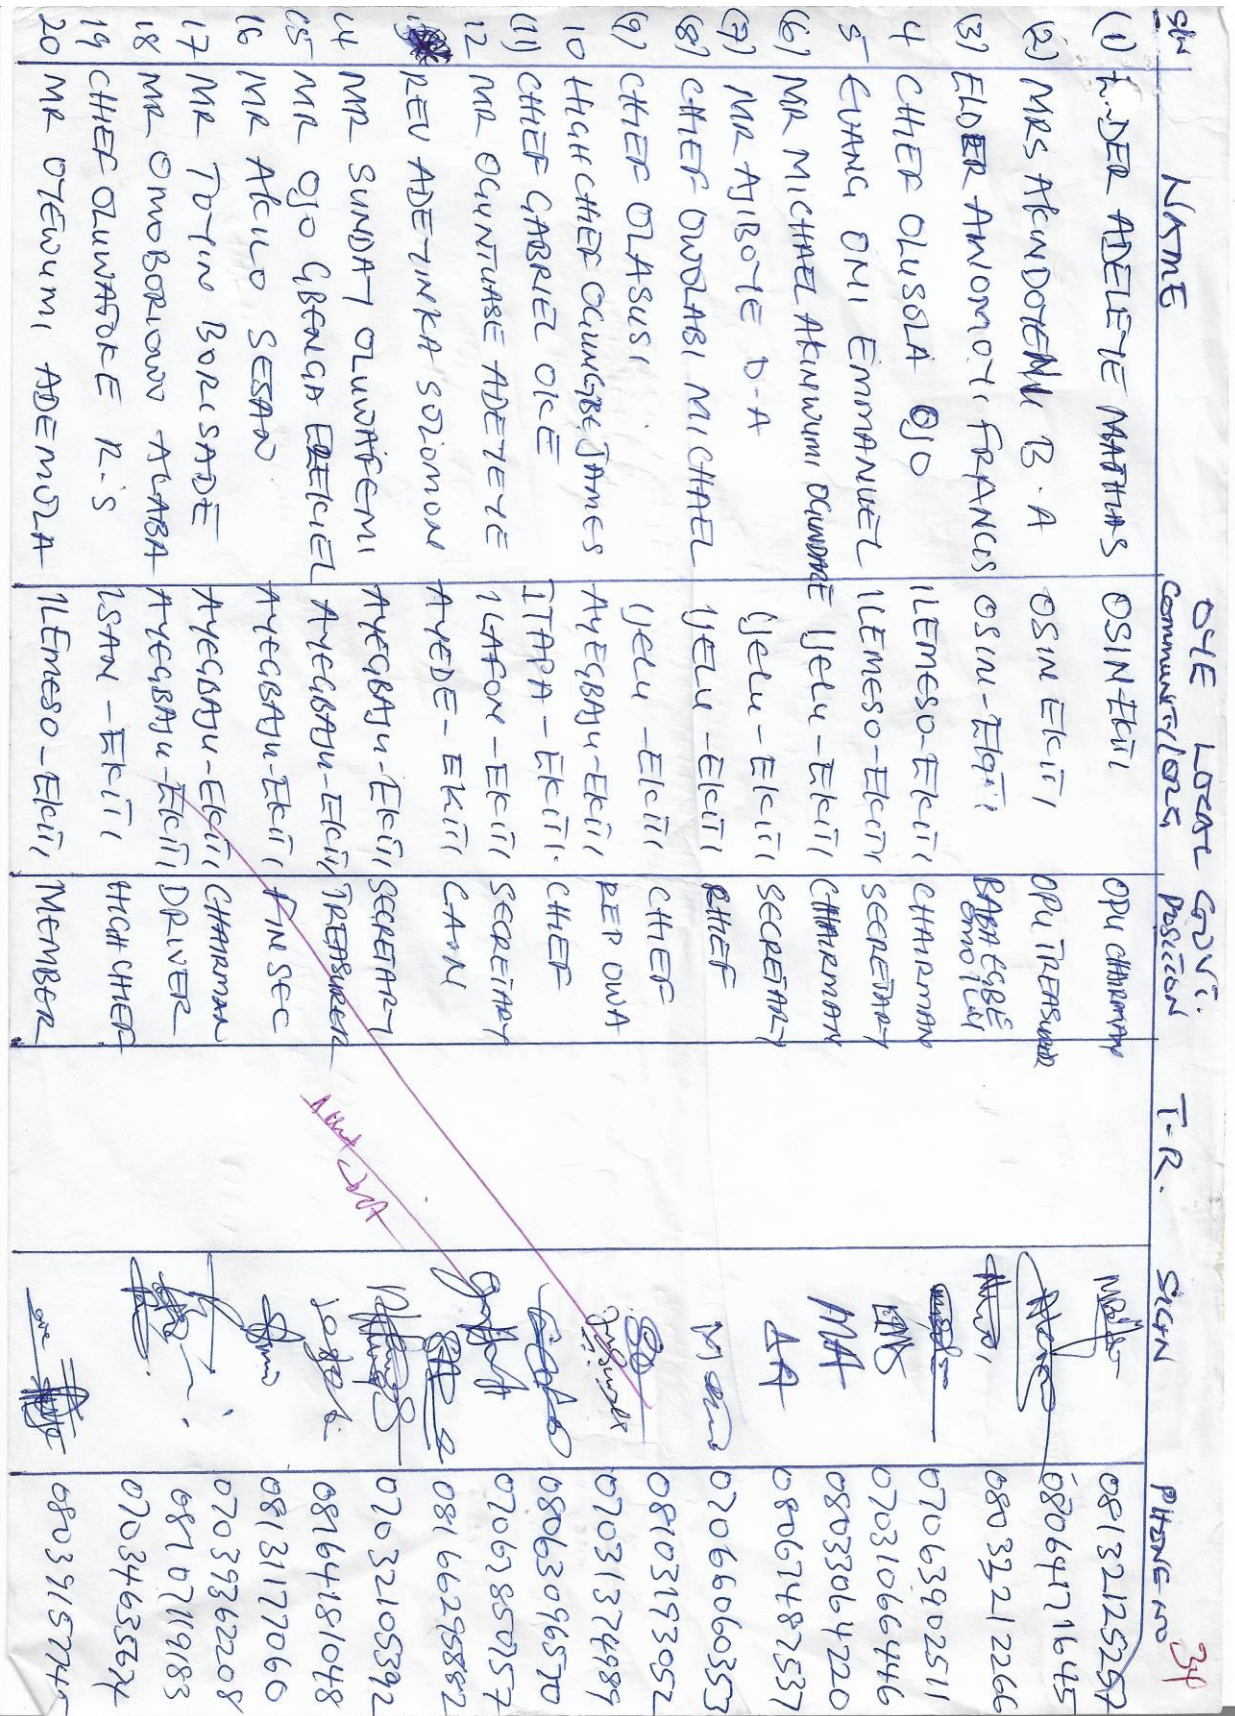 OYE LOCAL GOVT.
S/N NAME COMMUNITY/ORG POSITION T-R. SIGN PHONE-NO 34
(1) ADELEYE MATHIAS OSIN-EKITI OPU CHAIRMAN 08132125257
(2) MRS AKINDOYENI B.A OSIN EKITI OPU TREASURER 08064171645
(3) ELDER ANIOMOYI FRANCIS OSIN-EKITI BABA EGBE OMO ILU 08032212266
4 CHIEF OLUSOLA OJO ILEMESO-EKITI CHAIRMAN 07063902511
5 EVANG ONI EMMANUEL ILEMESO-EKITI SECRETARY 07031066446
(6) MR MICHAEL AKINWUMI OGUNDARE IJELU-EKITI CHAIRMAN 08033064220
(7) MR AJIBOYE D-A IJELU-EKITI SECRETARY AA 08067487537
(8) CHIEF OWOLABI MICHAEL IJELU-EKITI CHIEF 07066060353
(9) CHIEF OLASUSI IJELU-EKITI CHIEF 08103193052
10 HIGH CHIEF OGUNGBE JAMES AYEGBAJU-EKITI REP OWA 07031374989
(11) CHIEF GABRIEL OKE ITAPA-EKITI. CHIEF 08063096570
12 MR OGUNTUASE ADEYEYE ILAFON-EKITI SECRETARY 07067850757
REV ADEYINKA SOLOMON AYEDE-EKITI CAN 08166295882
14 MR SUNDAY OLUWAFEMI AYEGBAJU-EKITI SECRETARY 07032105392
15 MR OJO GBENGA EZEKIEL AYEGBAJU-EKITI TREASURER 08164181048
16 MR AKUO SESAN AYEGBAJU-EKITI FIN SEC 08131177060
17 MR TOYIN BORISADE AYEGBAJU-EKITI CHAIRMAN 07039362208
18 MR OMOBORIOWO ALABA AYEGBAJU-EKITI DRIVER 08107119183
19 CHIEF OLUWATOKE R.S ISAN-EKITI HIGH CHIEF 07034635674
20 MR OYEWUMI ADEMOLA ILEMESO-EKITI MEMBER 08039157745